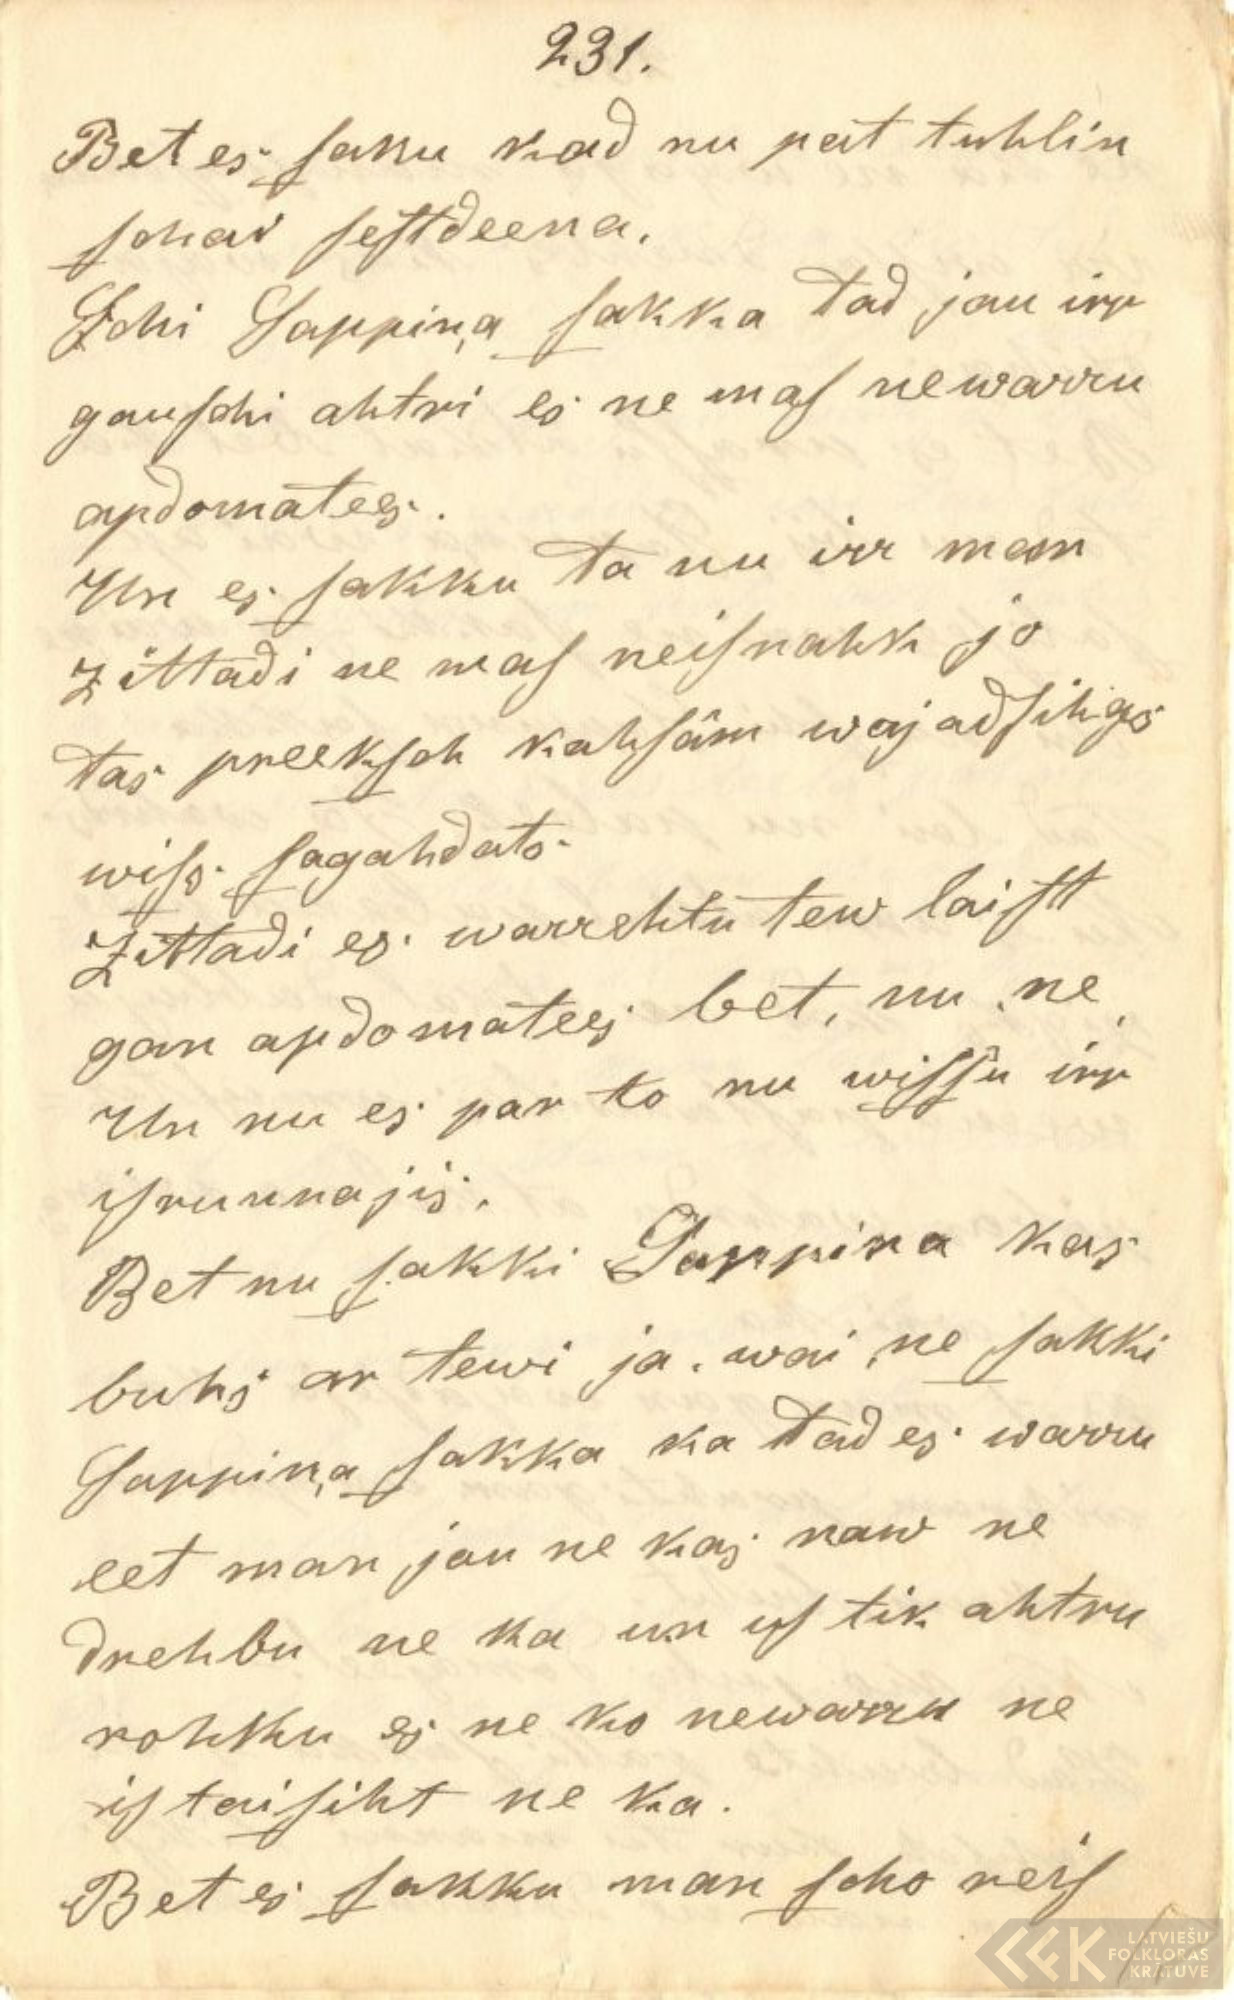 231.
Bet es ſaku kad nu pat tuhlin
ſchai ſeſtdeena.
Schi Lappiņa ſakka tad jau irr
gauſchi ahtri es ne maſ newarru
apdomatees.
Un es ſakku ta nu irr man
zittadi ne maſ neiſnahk jo
tas preekſch kahſâm wajadſihgs
wiſs ſagahdats
Zittadi es warrehtu tew laiſt
gan apdomatees bet, nu ne,
Un nu es par to nu wiſſu irr
iſrunnajis.
Bet nu ſakki Lappina kas
buhs ar tewi ja. wai ne ſakki
Lappiņa ſakka ka tad es warru
eet man jau ne kas naw ne
drehbu ne ka un uſ tik ahtru
rohku es ne ko newarru ne
iſtaiſiht ne ka.
Bet es ſakku man ſcho reiſ
LATVIEŠU
FOLKLORAS
KRĀTUVE